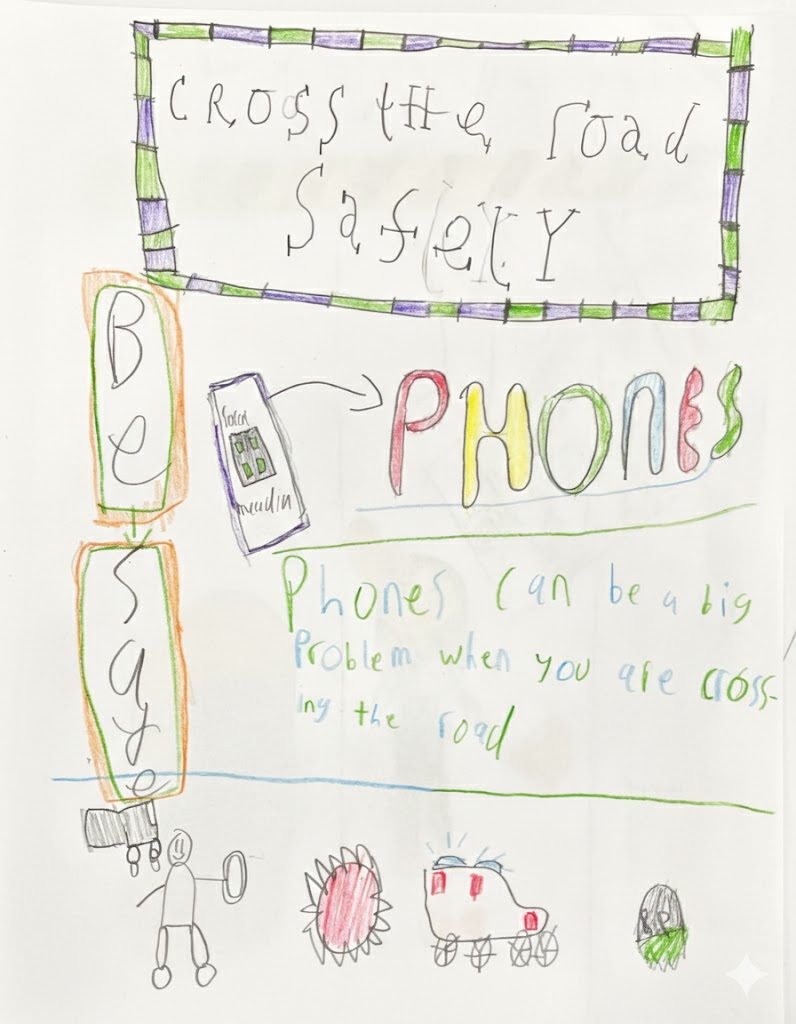 CROSS tHe road
SafetY
Be
safe
PHONES
Phones can be a big
Problem when you are cross-
ing the road
RIP